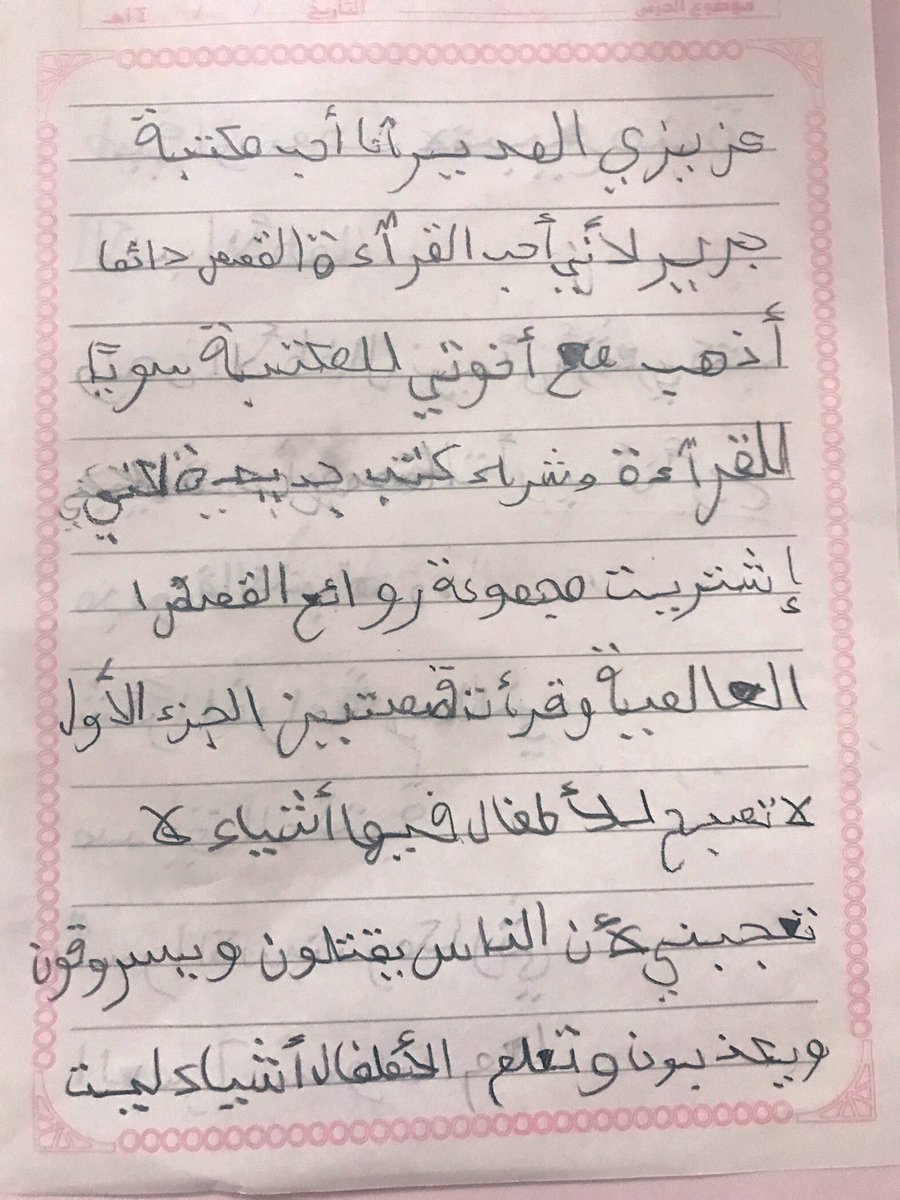 موضوع الدرس التاريخ ١٤هـ
عزيزي المدير أنا أحب مكتبة
جرير لأنني أحب القرآءة القصص دائما
أذهب مع أخوتي للمكتبة سويًا
للقرآءة وشراء كتب جديدة لكنني
إشتريت مجموعة روائع القصص
العالمية وقرأت قصتين الجزء الأول
لا تصبح للأطفال فيها أشياء لا
تعجبني لأن الناس يقتلون ويسروقون
ويعذبون وتعلم الأطفال أشياء ليست